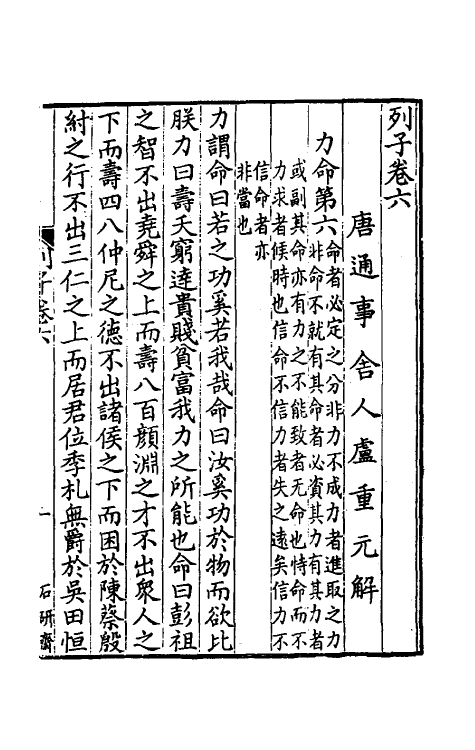 列子卷六
唐通事舍人盧重元解
力命第六
命者必定之分非力不成力者進取之力
非命不就有其命者必資其力有其力者
或副其命亦有力之不能致者无命也恃命而不
力求者候時也信命不信力者失之遠矣信力不
信命者亦
非當也
力謂命曰若之功奚若我哉命曰汝奚功於物而欲比
朕力曰壽夭窮達貴賤貧富我力之所能也命曰彭祖
之智不出堯舜之上而壽八百顏淵之才不出衆人之
下而壽四八仲尼之德不出諸侯之下而困於陳蔡殷
紂之行不出三仁之上而居君位季札無爵於吳田恒
列子卷六
一
石研齋